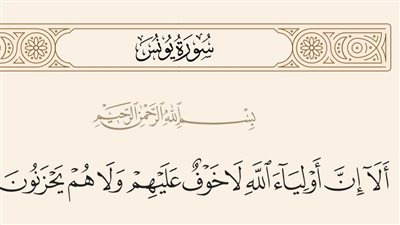 سُورَةُ يُونُسَ
بِسْمِ اللَّهِ الرَّحْمَٰنِ الرَّحِيمِ
أَلَآ إِنَّ أَوْلِيَآءَ ٱللَّهِ لَا خَوْفٌ عَلَيْهِمْ وَلَا هُمْ يَحْزَنُونَ